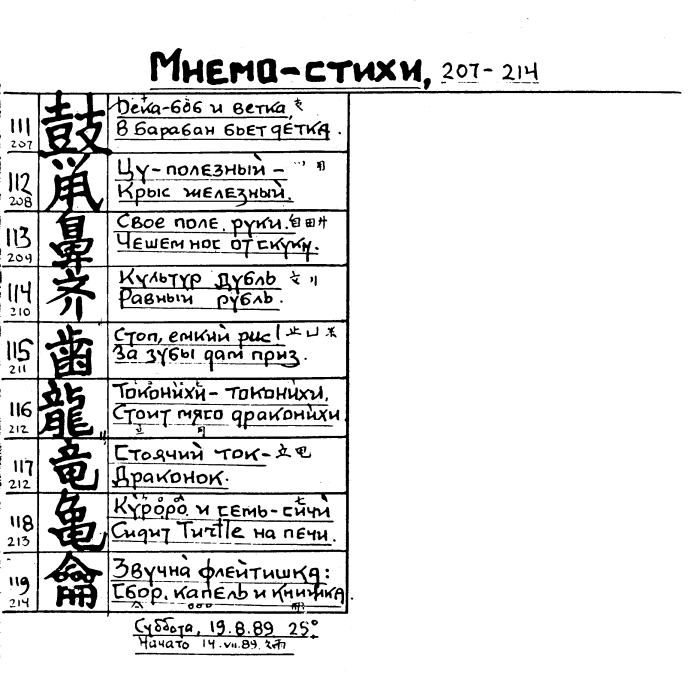 Мнемо-стихи, 207-214
111
207
鼓
Дека-боб и ветка,
В барабан бьет детка.
112
208
鼡
Цу-полезный -
Крыс железный.
113
209
鼻
Свое поле, руки. 自田廾
Чешем нос от скуки.
114
210
斉
Культур дубль
Равный рубль.
115
211
歯
Стоп, емкий рис! 止凵米
За зубы дам приз.
116
212
龍
Токонихи- токонихи,
Стоит мясо драконихи
立 月
117
212
竜
Стоячий ток- 立电
Драконок.
118
213
亀
Куроро и семь-сичи
Сидит Turtle на печи.
119
214
龠
Звучна флейтишка:
Сбор, капель и книжка.
Суббота, 19.8.89 25°
Начато 14.VII.89.